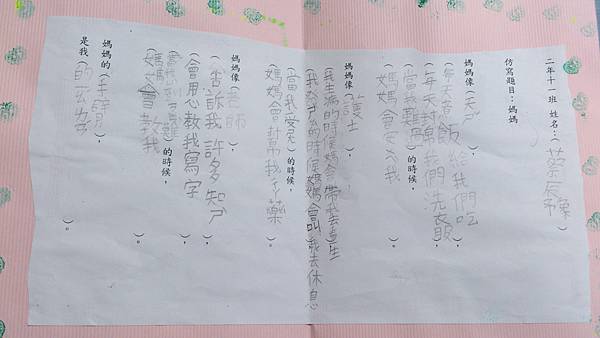 二年十一班 姓名：（蔡辰）
仿寫題目：媽媽
媽媽像（天ㄕ），
（每天煮飯給我們吃），
（每天幫我們洗衣服），
（當我難過）的時候，
（媽媽會安ㄨㄟ我）。
媽媽像（護士），
（我生病的時候媽會帶我去看生），
（我發ㄕㄠ的時候媽媽會叫我去休息），
（當我受ㄕㄤ）的時候，
（媽媽會幫我ㄘㄚ藥）。
媽媽像（老師），
（告訴我許多知ㄕ），
（會用心教我寫字），
（當我到難）的時候，
（媽媽會教我）。
媽媽的（手臂），
是我（的）。